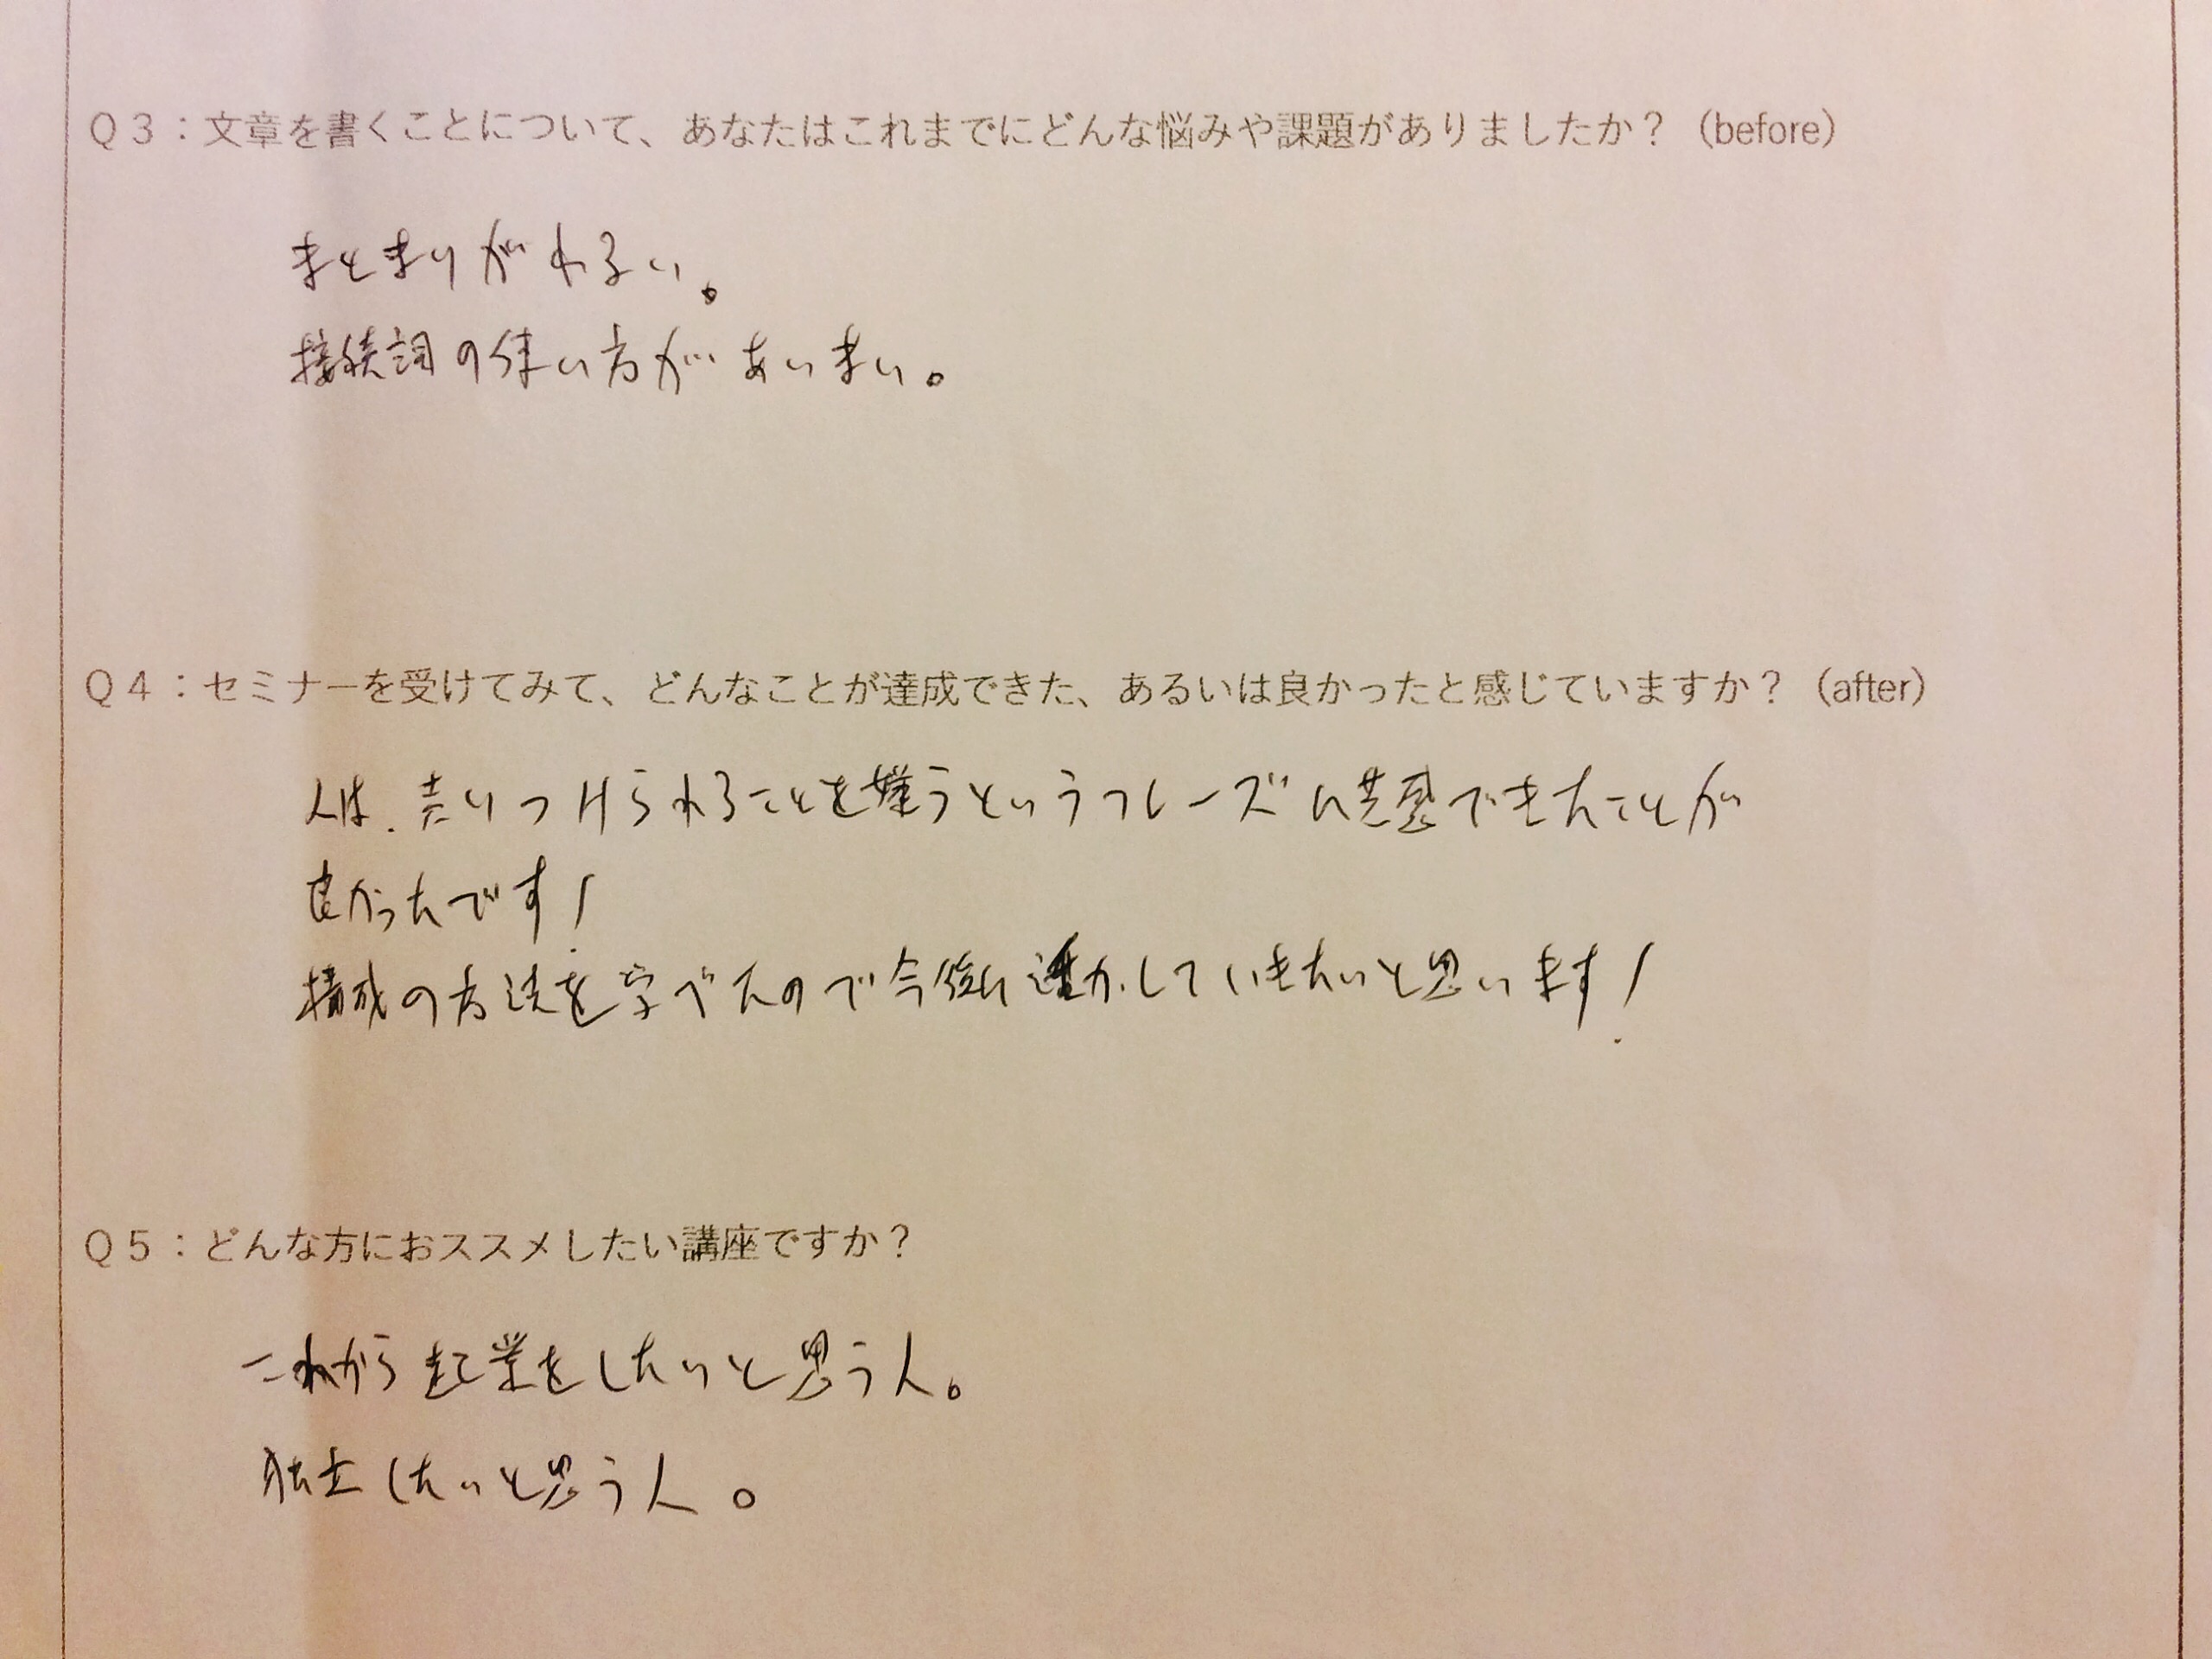 Q3：文章を書くことについて、あなたはこれまでにどんな悩みや課題がありましたか？（before）
まとまりがわるい。
接続詞の使い方があいまい。
Q4：セミナーを受けてみて、どんなことが達成できた、あるいは良かったと感じていますか？（after）
人は、売りつけられることを嫌うというフレーズに共感できたことが
良かったです！
構成の方法を学べたので今後に活かしていきたいと思います！
Q5：どんな方におススメしたい講座ですか？
これから起業をしたいと思う人。
独立したいと思う人。